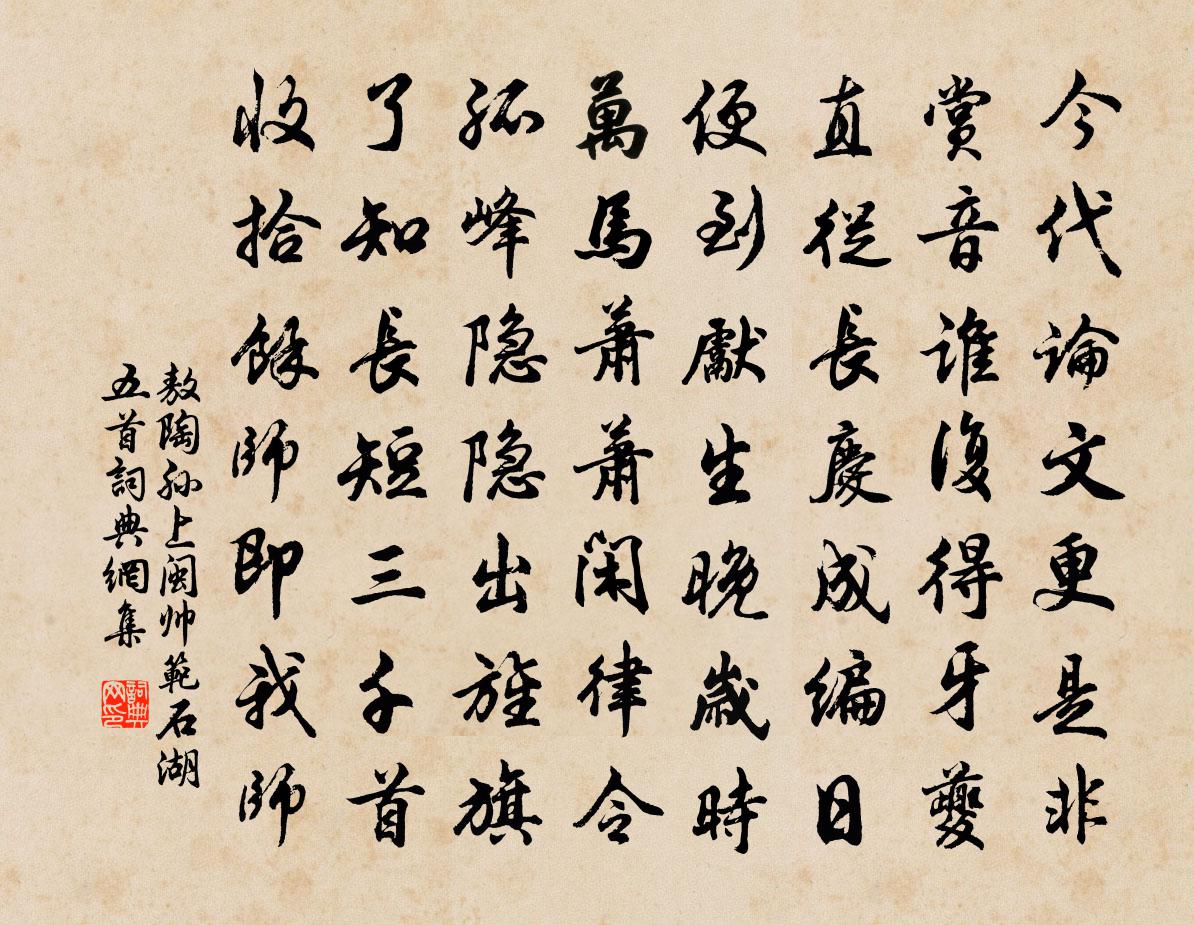 今代論文更是非
賞音誰復得牙夔
直從長慶成編日
便到獻生晚歲時
萬馬蕭蕭閑律令
孤峰隐隐出旌旗
了知長短三千首
收拾餘師即我師
敖陶孙上闽帅範石湖
五首詞典網集
詞典网印